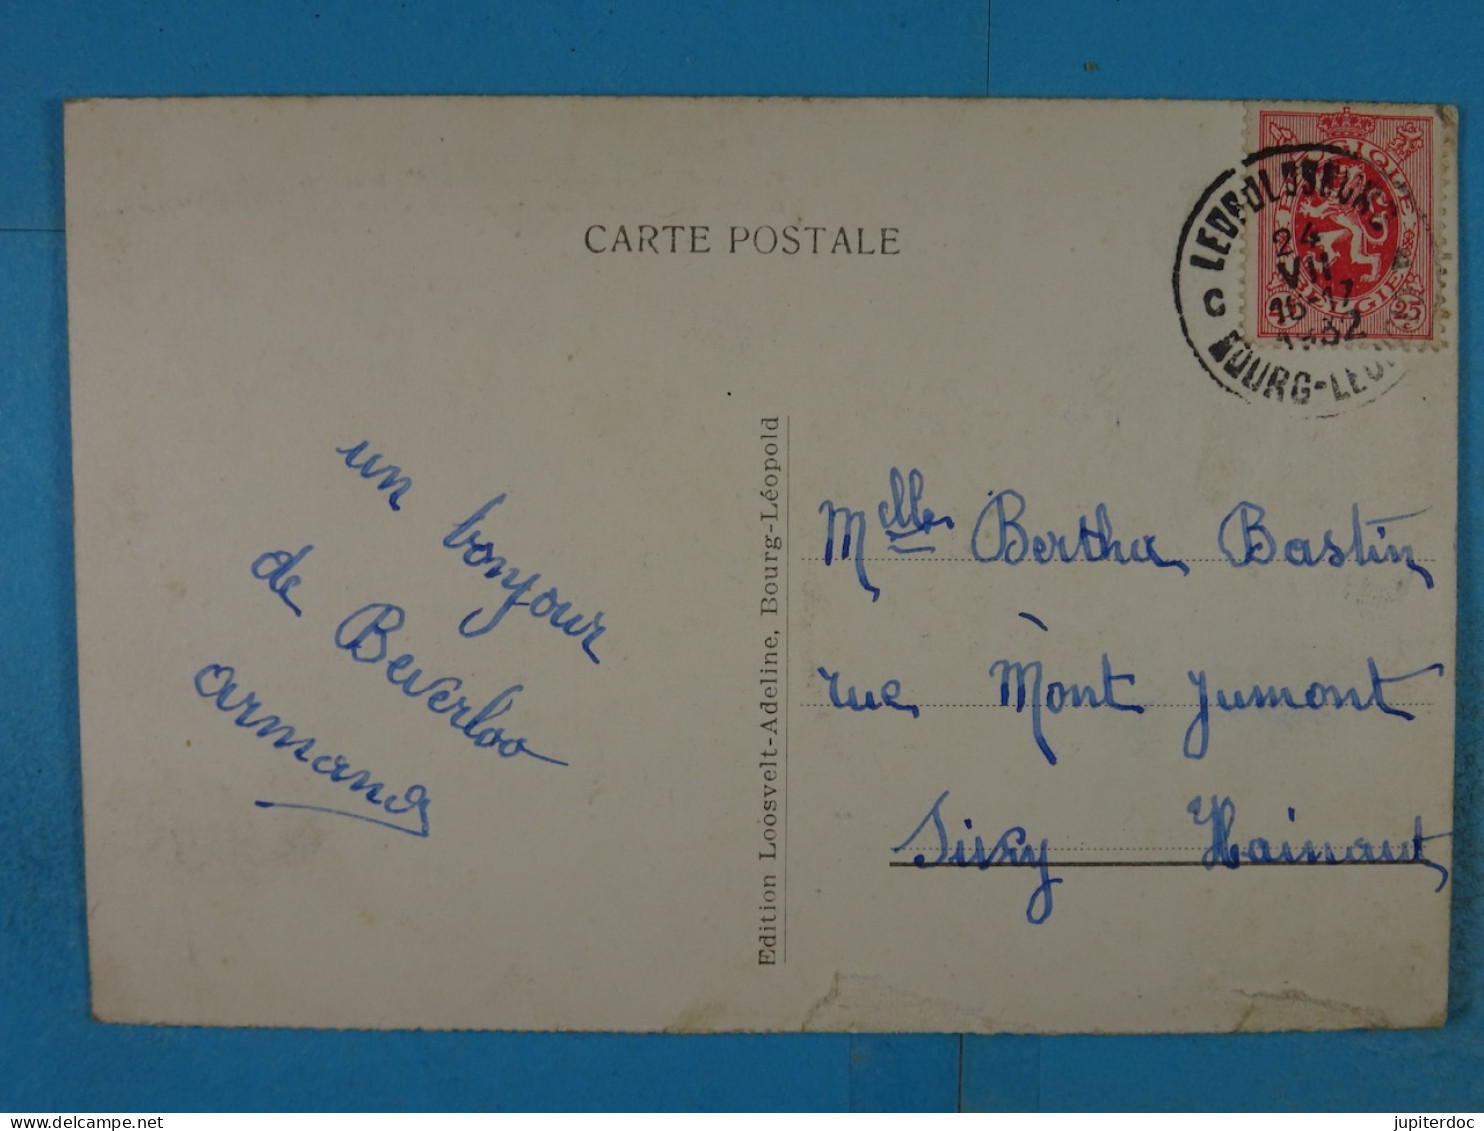 CARTE POSTALE
LEOPOLDSBURG
24
VII
16-17
1932
BOURG-LEOPOLD
C
BELGIQUE
BELGIE
25
un bonjour
de Beverloo
armand
Edition Loosvelt-Adeline, Bourg-Léopold
Melle Bertha Bastin
rue Mont Jumont
Sivry Hainaut
delcampe.net
jupiterdoc